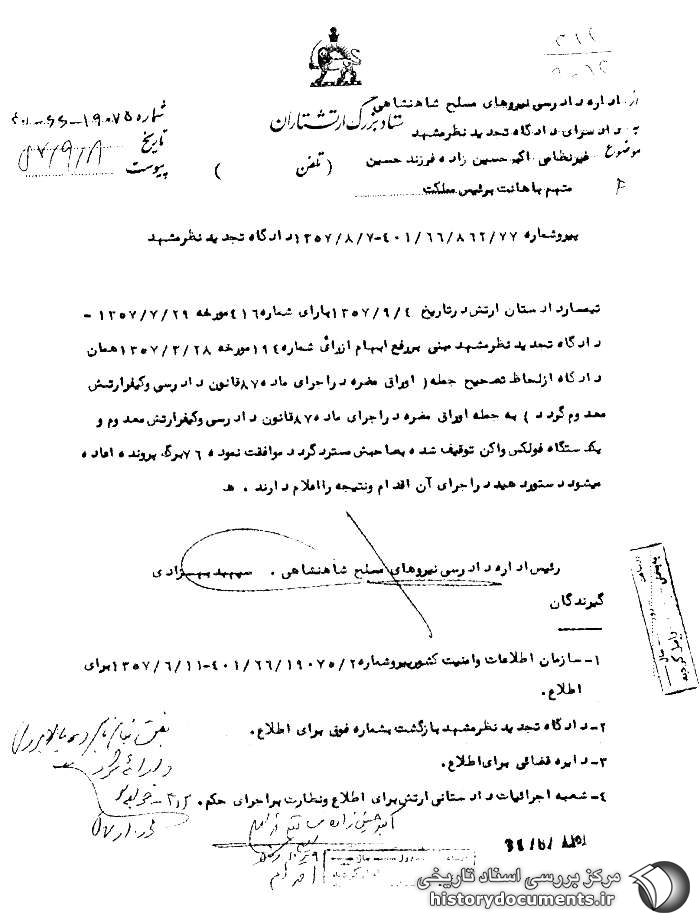 از: اداره دادرسی نیروهای مسلح شاهنشاهی
ستاد بزرگ ارتشتاران
شماره ۱۹۰۷۵-۶۶-۴۰۱
به دادسرای دادگاه تجدید نظر مشهد
تاریخ ۵۷/۹/۸
موضوع غیرنظامی اکبر حسین زاده فرزند حسین (تلفن )
پیوست
متهم باهانت برئیس مملکت
پیرو شماره ۴۰۱/۶۶/۸۶۲/۷۷-۱۳۵۷/۸/۷ دادگاه تجدید نظر مشهد
تیمسار دادستان ارتش در تاریخ ۱۳۵۷/۹/۴ بارای شماره ۴۱۶ مورخه ۱۳۵۷/۷/۲۹ -
دادگاه تجدید نظر مشهد مبنی بر رفع ابهام از رای شماره ۱۹۴ مورخه ۱۳۵۷/۳/۲۸ همان
دادگاه از لحاظ تصحیح جمله ( اوراق مضره در اجرای ماده ۸۷ قانون دادرسی وکیفر ارتش
معدوم گردد ) به جمله اوراق مضره در اجرای ماده ۸۷ قانون دادرسی وکیفر ارتش معدوم و
یکدستگاه فولکس واگن توقیف شده بصاحبش مسترد گردد موافقت نموده ۷۶ برگ پرونده اعاده
میشود دستور دهید در اجرای آن اقدام ونتیجه را اعلام دارند . ه
رئیس اداره دادرسی نیروهای مسلح شاهنشاهی . سپهبد بهزادی
گیرندگان
۱- سازمان اطلاعات وامنیت کشور پیرو شماره ۴۰۱/۶۶/۱۹۰۷۵/۲-۱۳۵۷/۶/۱۱ برای
اطلاع.
۲- دادگاه تجدید نظر مشهد بازگشت بشماره فوق برای اطلاع.
۳- دایره قضائی برای اطلاع.
۴- شعبه اجرائیات دادستانی ارتش برای اطلاع ونظارت بر اجرای حکم.
مرکز بررسی اسناد تاریخی
historydocuments.ir